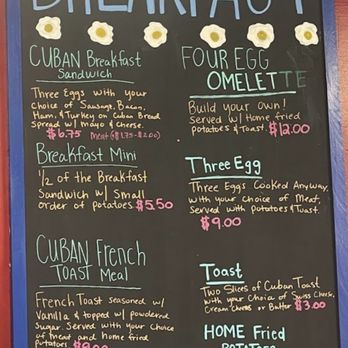 BREAKFAST
CUBAN Breakfast
Sandwich
Three Eggs with your
choice of Sausage, Bacon,
Ham, & Turkey on Cuban Bread
Spread w/ mayo & cheese.
$6.75 meat ($1.75-$2.00)
Breakfast Mini
1/2 of the Breakfast
Sandwich w/ Small
order of potatoes $5.50
CUBAN French
TOAST Meal
French Toast seasoned w/
Vanilla & topped w/ powdered
Sugar. Served with your choice
of meat and home fried
potatoes
FOUR EGG
OMELETTE
Build your own!
Served w/ Home fried
potatoes & Toast. $12.00
Three Egg
Three Eggs Cooked Anyway,
with your choice of Meat,
Served with Potatoes & Toast.
$9.00
Toast
Two Slices of Cuban Toast
with your Choice of Swiss Cheese,
Cream Cheese or Butter $3.00
HOME Fried
POTATOES